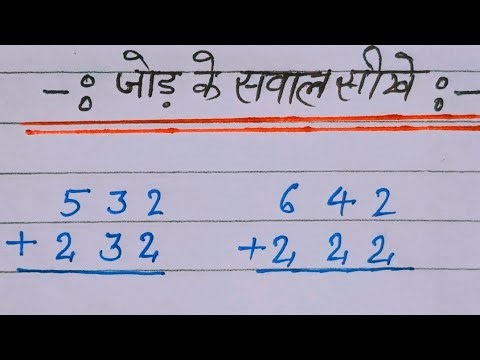 -: जोड़ के सवाल सीखे :-
532 642
+232 +222